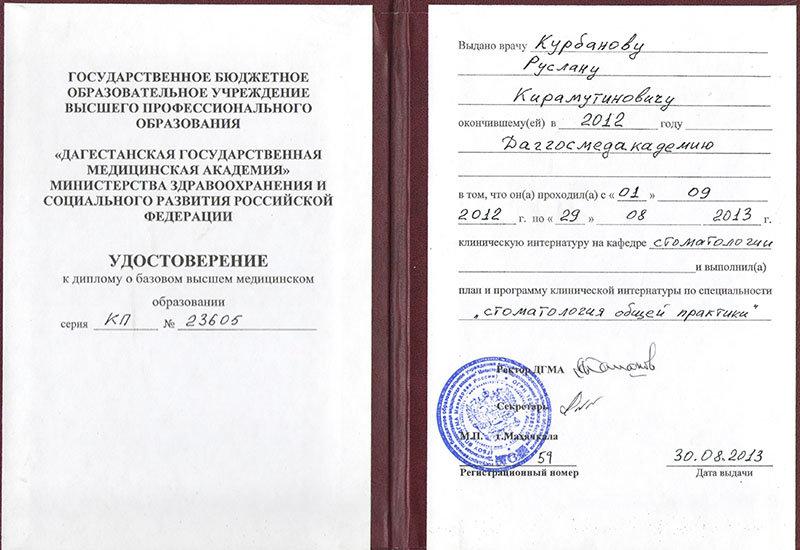 ГОСУДАРСТВЕННОЕ БЮДЖЕТНОЕ
ОБРАЗОВАТЕЛЬНОЕ УЧРЕЖДЕНИЕ
ВЫСШЕГО ПРОФЕССИОНАЛЬНОГО
ОБРАЗОВАНИЯ
«ДАГЕСТАНСКАЯ ГОСУДАРСТВЕННАЯ
МЕДИЦИНСКАЯ АКАДЕМИЯ»
МИНИСТЕРСТВА ЗДРАВООХРАНЕНИЯ И
СОЦИАЛЬНОГО РАЗВИТИЯ РОССИЙСКОЙ
ФЕДЕРАЦИИ
УДОСТОВЕРЕНИЕ
к диплому о базовом высшем медицинском
образовании
серия КП № 23605
Выдано врачу Курбанову
Руслану
Кирамутиновичу
окончившему(ей) в 2012 году
Даггосмедакадемию
в том, что он(а) проходил(а) с « 01 » 09
2012 г. по « 29 » 08 2013 г.
клиническую интернатуру на кафедре стоматологии
и выполнил(а)
план и программу клинической интернатуры по специальности
„стоматология общей практики"
Ректор ДГМА
Секретарь
М.П. г.Махачкала
59 30.08.2013
Регистрационный номер Дата выдачи